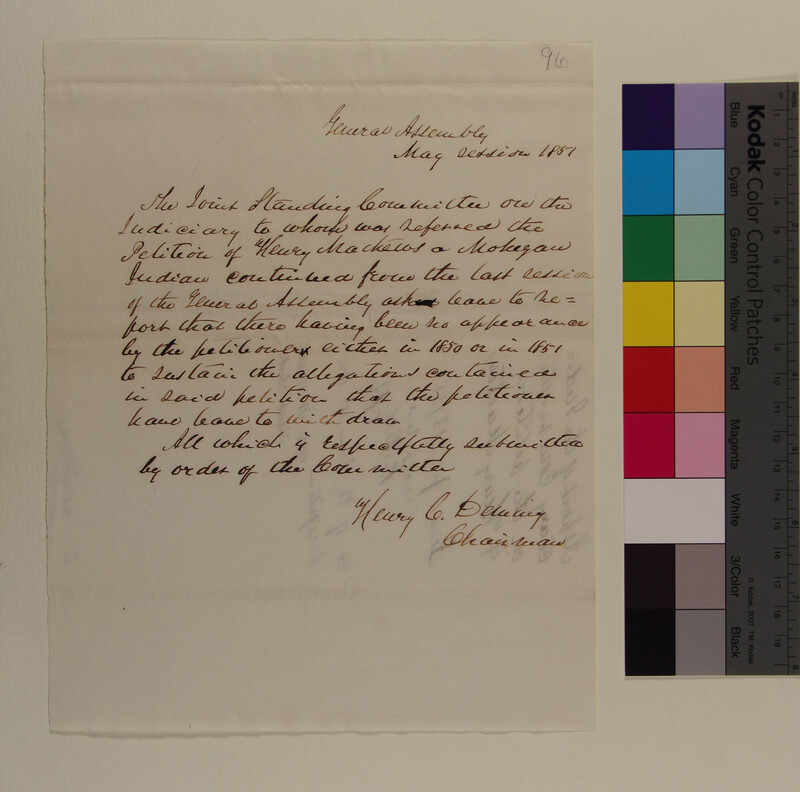 96
General Assembly
May session 1851
The Joint Standing Committee on the
Judiciary to whom was referred the
Petition of Henry Mathews a Mohegan
Indian continued from the last session
of the General Assembly ask leave to re=
port that there having been no appearance
by the petitioner either in 1850 or in 1851
to sustain the allegations contained
in said petition that the petitioner
have leave to withdraw
All which is respectfully submitted
by order of the Committee
Henry C. Deming
Chairman
Kodak Color Control Patches
Blue
Cyan
Green
Yellow
Red
Magenta
White
3/Color
Black
© Kodak, 2007 TM: Kodak